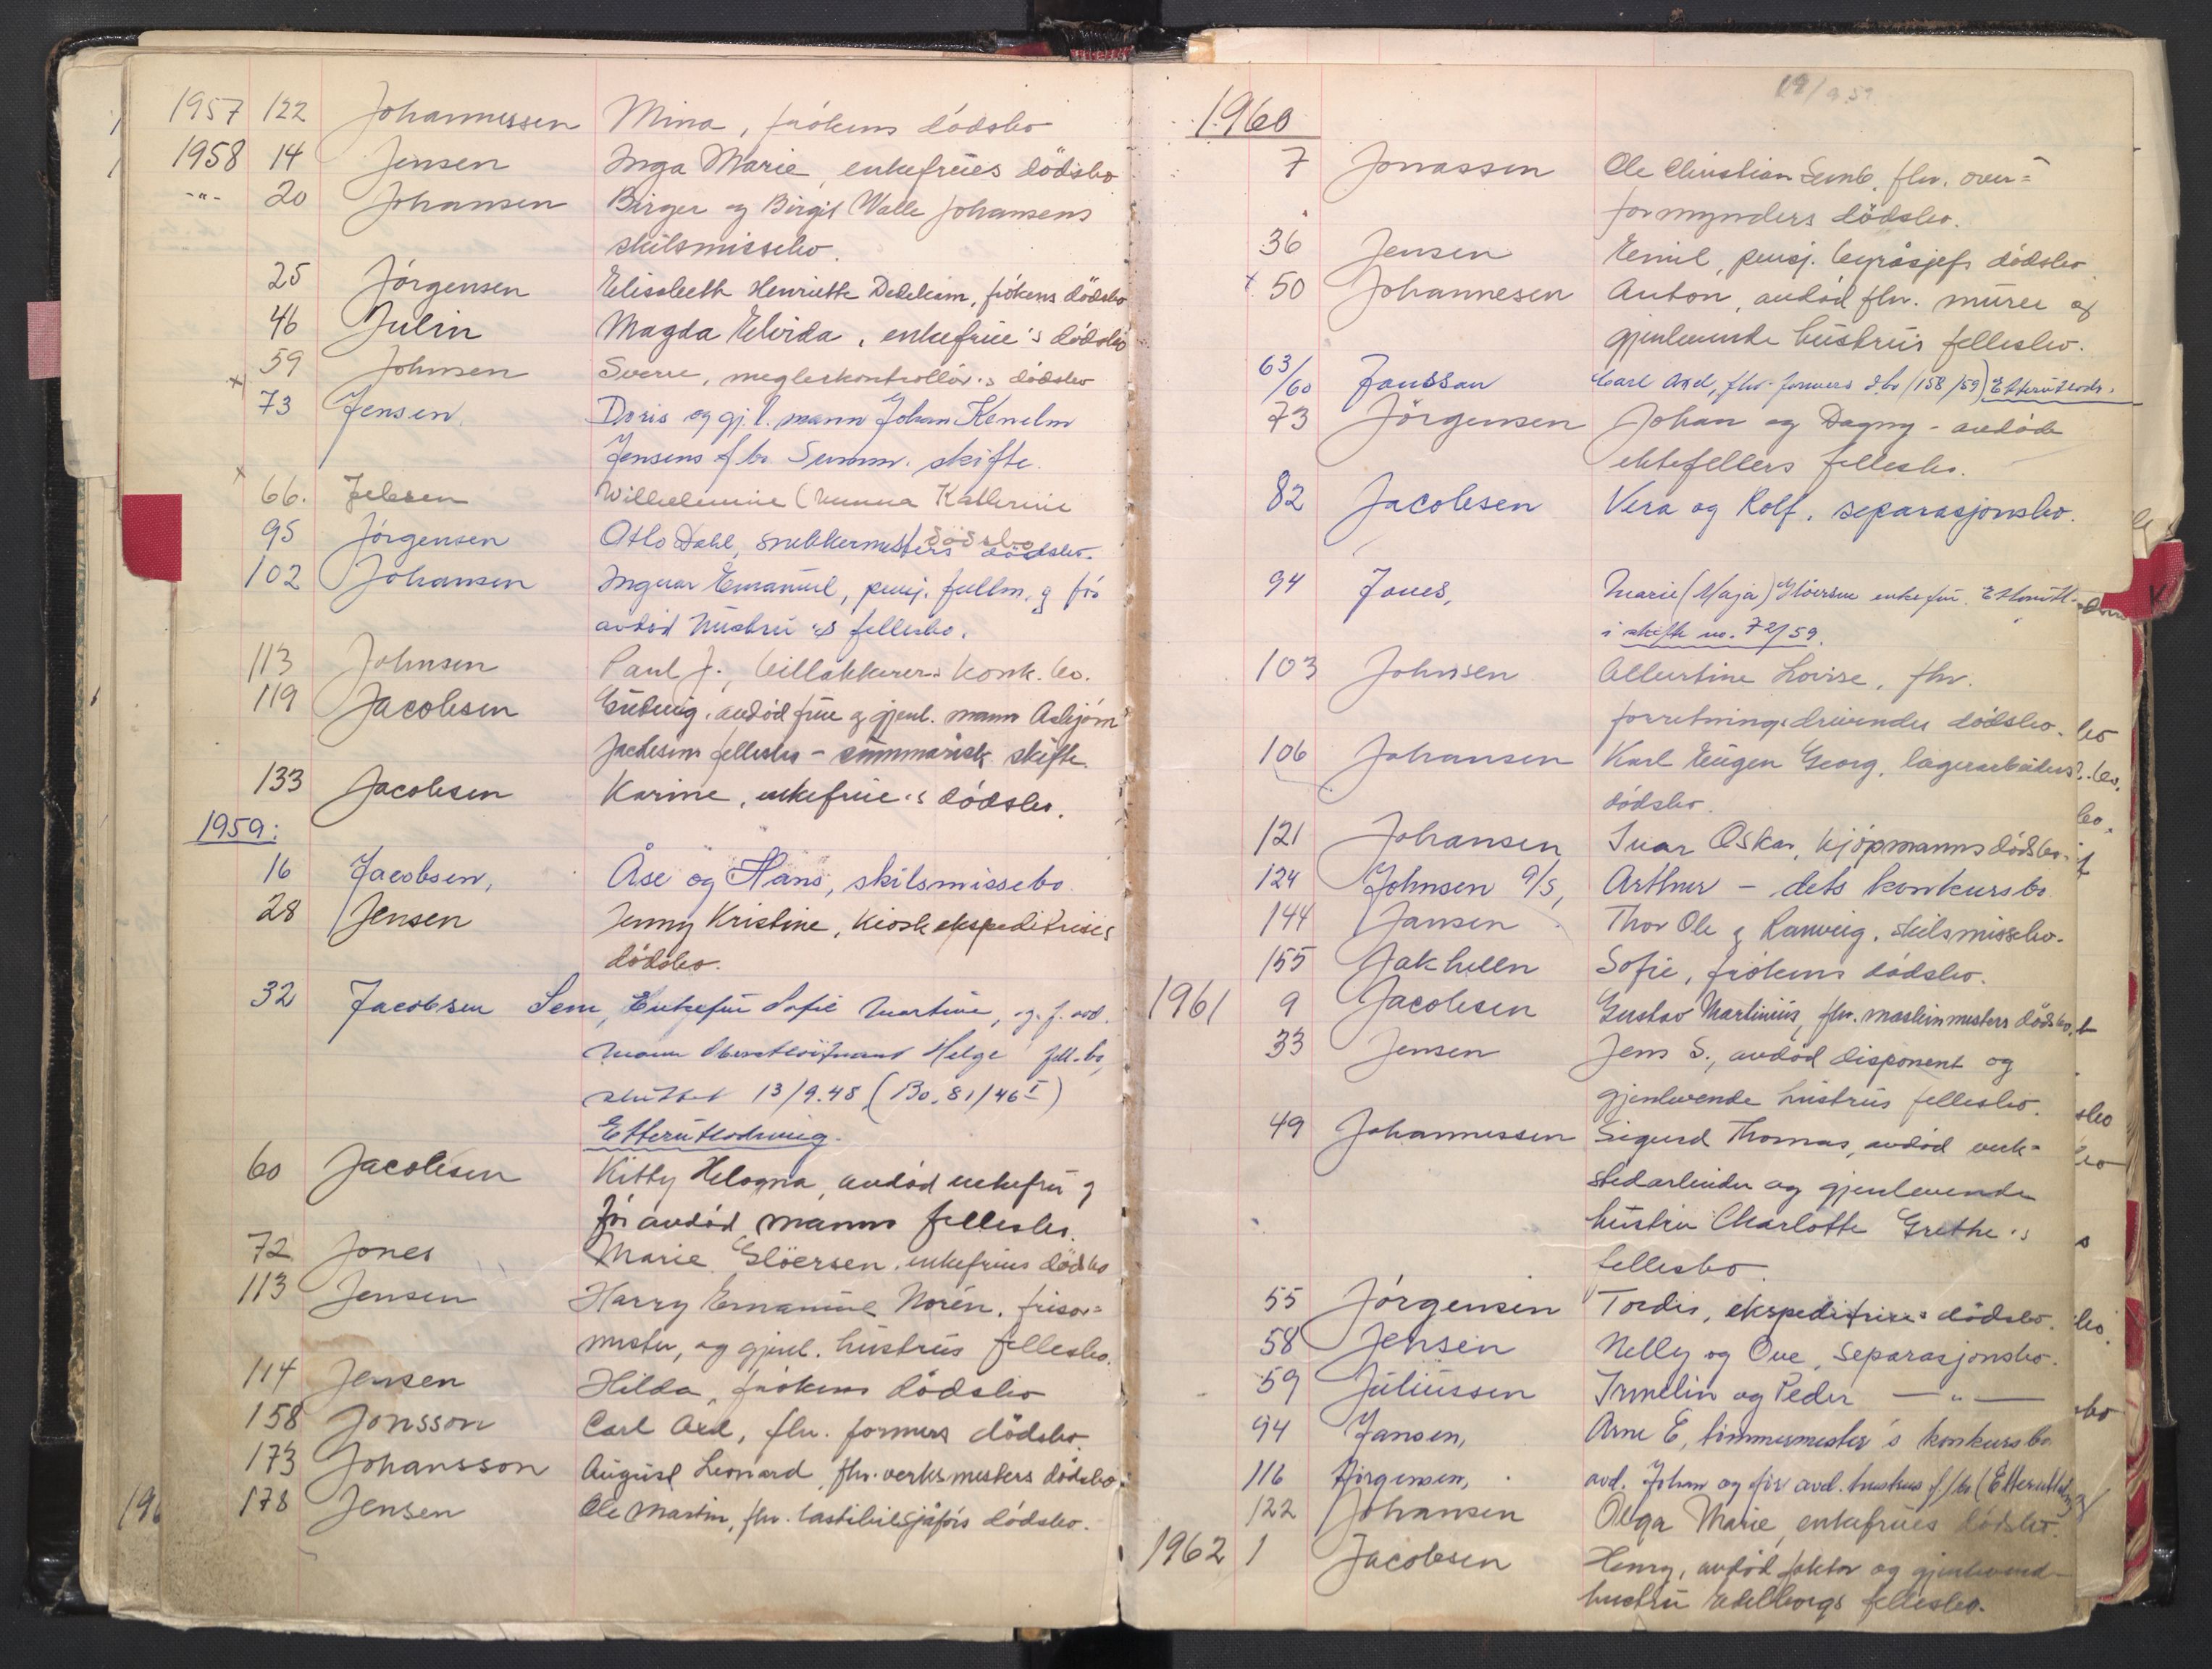 1957 122 Johannessen Mina, frökens dödsbo
1958 14 Jensen Inga Marie, enkefrues dödsbo
-"- 20 Johansen Birger og Birgit Walle Johansens
skilsmissebo.
25 Jörgensen Elisabeth Henriette Dedekam, frökens dödsbo
46 Julin Magda Elvida, enkefrue's dödsbo
59 Johnsen Sverre, meglerkontrollör's dödsbo
x 73 Jensen, Doris og gj.l. mann Johan Kenelm
Jensens f.bo. Summ. skifte.
x 66. Jebsen Wilhelmine (Minna Kathrine
dödsbo
95 Jörgensen Otto Dahl, snekkermesters dödsbo.
102 Johansen Ingvar Emanuel, pensj. fullm. og för
avdöd hustru's fellesbo.
113 Johnsen Paul J., billakkerers konk.bo.
119 Jacobsen Gudveig, avdöd frue og gjenl. mann Asbjörn
Jacobsens fellesbo - summarisk skifte.
133 Jacobsen Karine, enkefrue's dödsbo.
1959:
16 Jacobsen, Åse og Hans, skilsmissebo.
28 Jensen Jenny Kristine, kioskekspeditrises
dödsbo.
32 Jacobsen Sem, Enkefru Sofie Martine, og f. avd.
mann Oberstlöitnant Helge fell.bo,
sluttet 13/9.48 (Bo. 81/46 I)
Etterutlodning.
60 Jacobsen Kitty Helogna, avdöd enkefru og
för avdöd manns fellesbo.
72 Jones Marie Glöersen, enkefrues dödsbo
113 Jensen Harry Emanuel Norén, frisör=
mester, og gjenl. hustrus fellesbo.
114 Jensen Hilda, frökens dödsbo
158 Jonsson Carl Axel, fhv. formers dödsbo.
173 Johansson August Leonard, fhv. verksmesters dödsbo
196 178 Jensen Ole Martin, fhv. lastebilsjåförs dödsbo.
19/9 59
1960
7 Jonassen Ole Christian Semb, fhv. over=
formynders dödsbo.
36 Jensen Emil, pensj. byråsjefs dödsbo
x 50 Johannesen Anton, avdöd fhv. murer og
gjenlevende hustrus fellesbo.
63/60 Jonsson Carl Axel, fhv. formers d.bo (158/59) Etterutlodn.
73 Jörgensen Johan og Dagny - avdöde
ektefellers fellesbo.
82 Jacobsen Vera og Rolf, separasjonsbo.
94 Jones, Marie (Maja) Glöersen enkefru. Etterutl.
i skifte no. 72/59.
103 Johnsen Albertine Lovise, fhv.
forretningsdrivendes dödsbo.
106 Johansen Karl Eugen Georg, lagerarbeiders
dödsbo.
121 Johansen Ivar Oskar, kjöpmanns dödsbo.
124 Johnsen A/S, Arthur - dets konkursbo
144 Jansen Thor Ole og Ranveig, skilsmissebo.
155 Jakhelln Sofie, frökens dödsbo.
1961 9 Jacobsen Gustav Martinius, fhv. maskinmesters dödsbo.
33 Jensen Jens S., avdöd disponent og
gjenlevende hustrus fellesbo.
49 Johannessen Sigurd Thomas, avdöd verk-
stedarbeider og gjenlevende
hustru Charlotte Grethe's
fellesbo.
55 Jörgensen Tordis, ekspeditrise's dödsbo.
58 Jensen Nelly og Ove, separasjonsbo.
59 Juliussen Irmelin og Peder — " —
94 Jansen, Arne E, tömmermester's konkursbo
116 Jörgensen, avd. Johan og för avd. hustrus f/bo (Etterutlodning)
122 Johansen Olga Marie, enkefrues dödsbo.
1962 1 Jacobsen Henry, avdöd faktor og gjenlevende
hustru Edelborgs fellesbo.
K